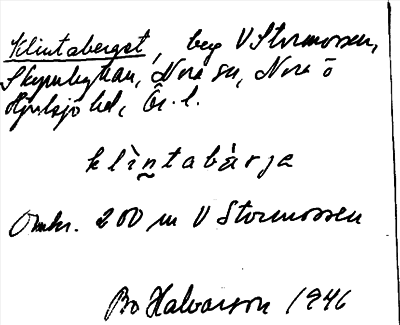 Klintaberget, berg V Stormossen,
Skrikarhyttan, Nora sn, Nora o
Hjulsjö hd, Ör. l.
klìntabàrja
Omkr. 200 m V Stormossen
Bo Halvarson 1946